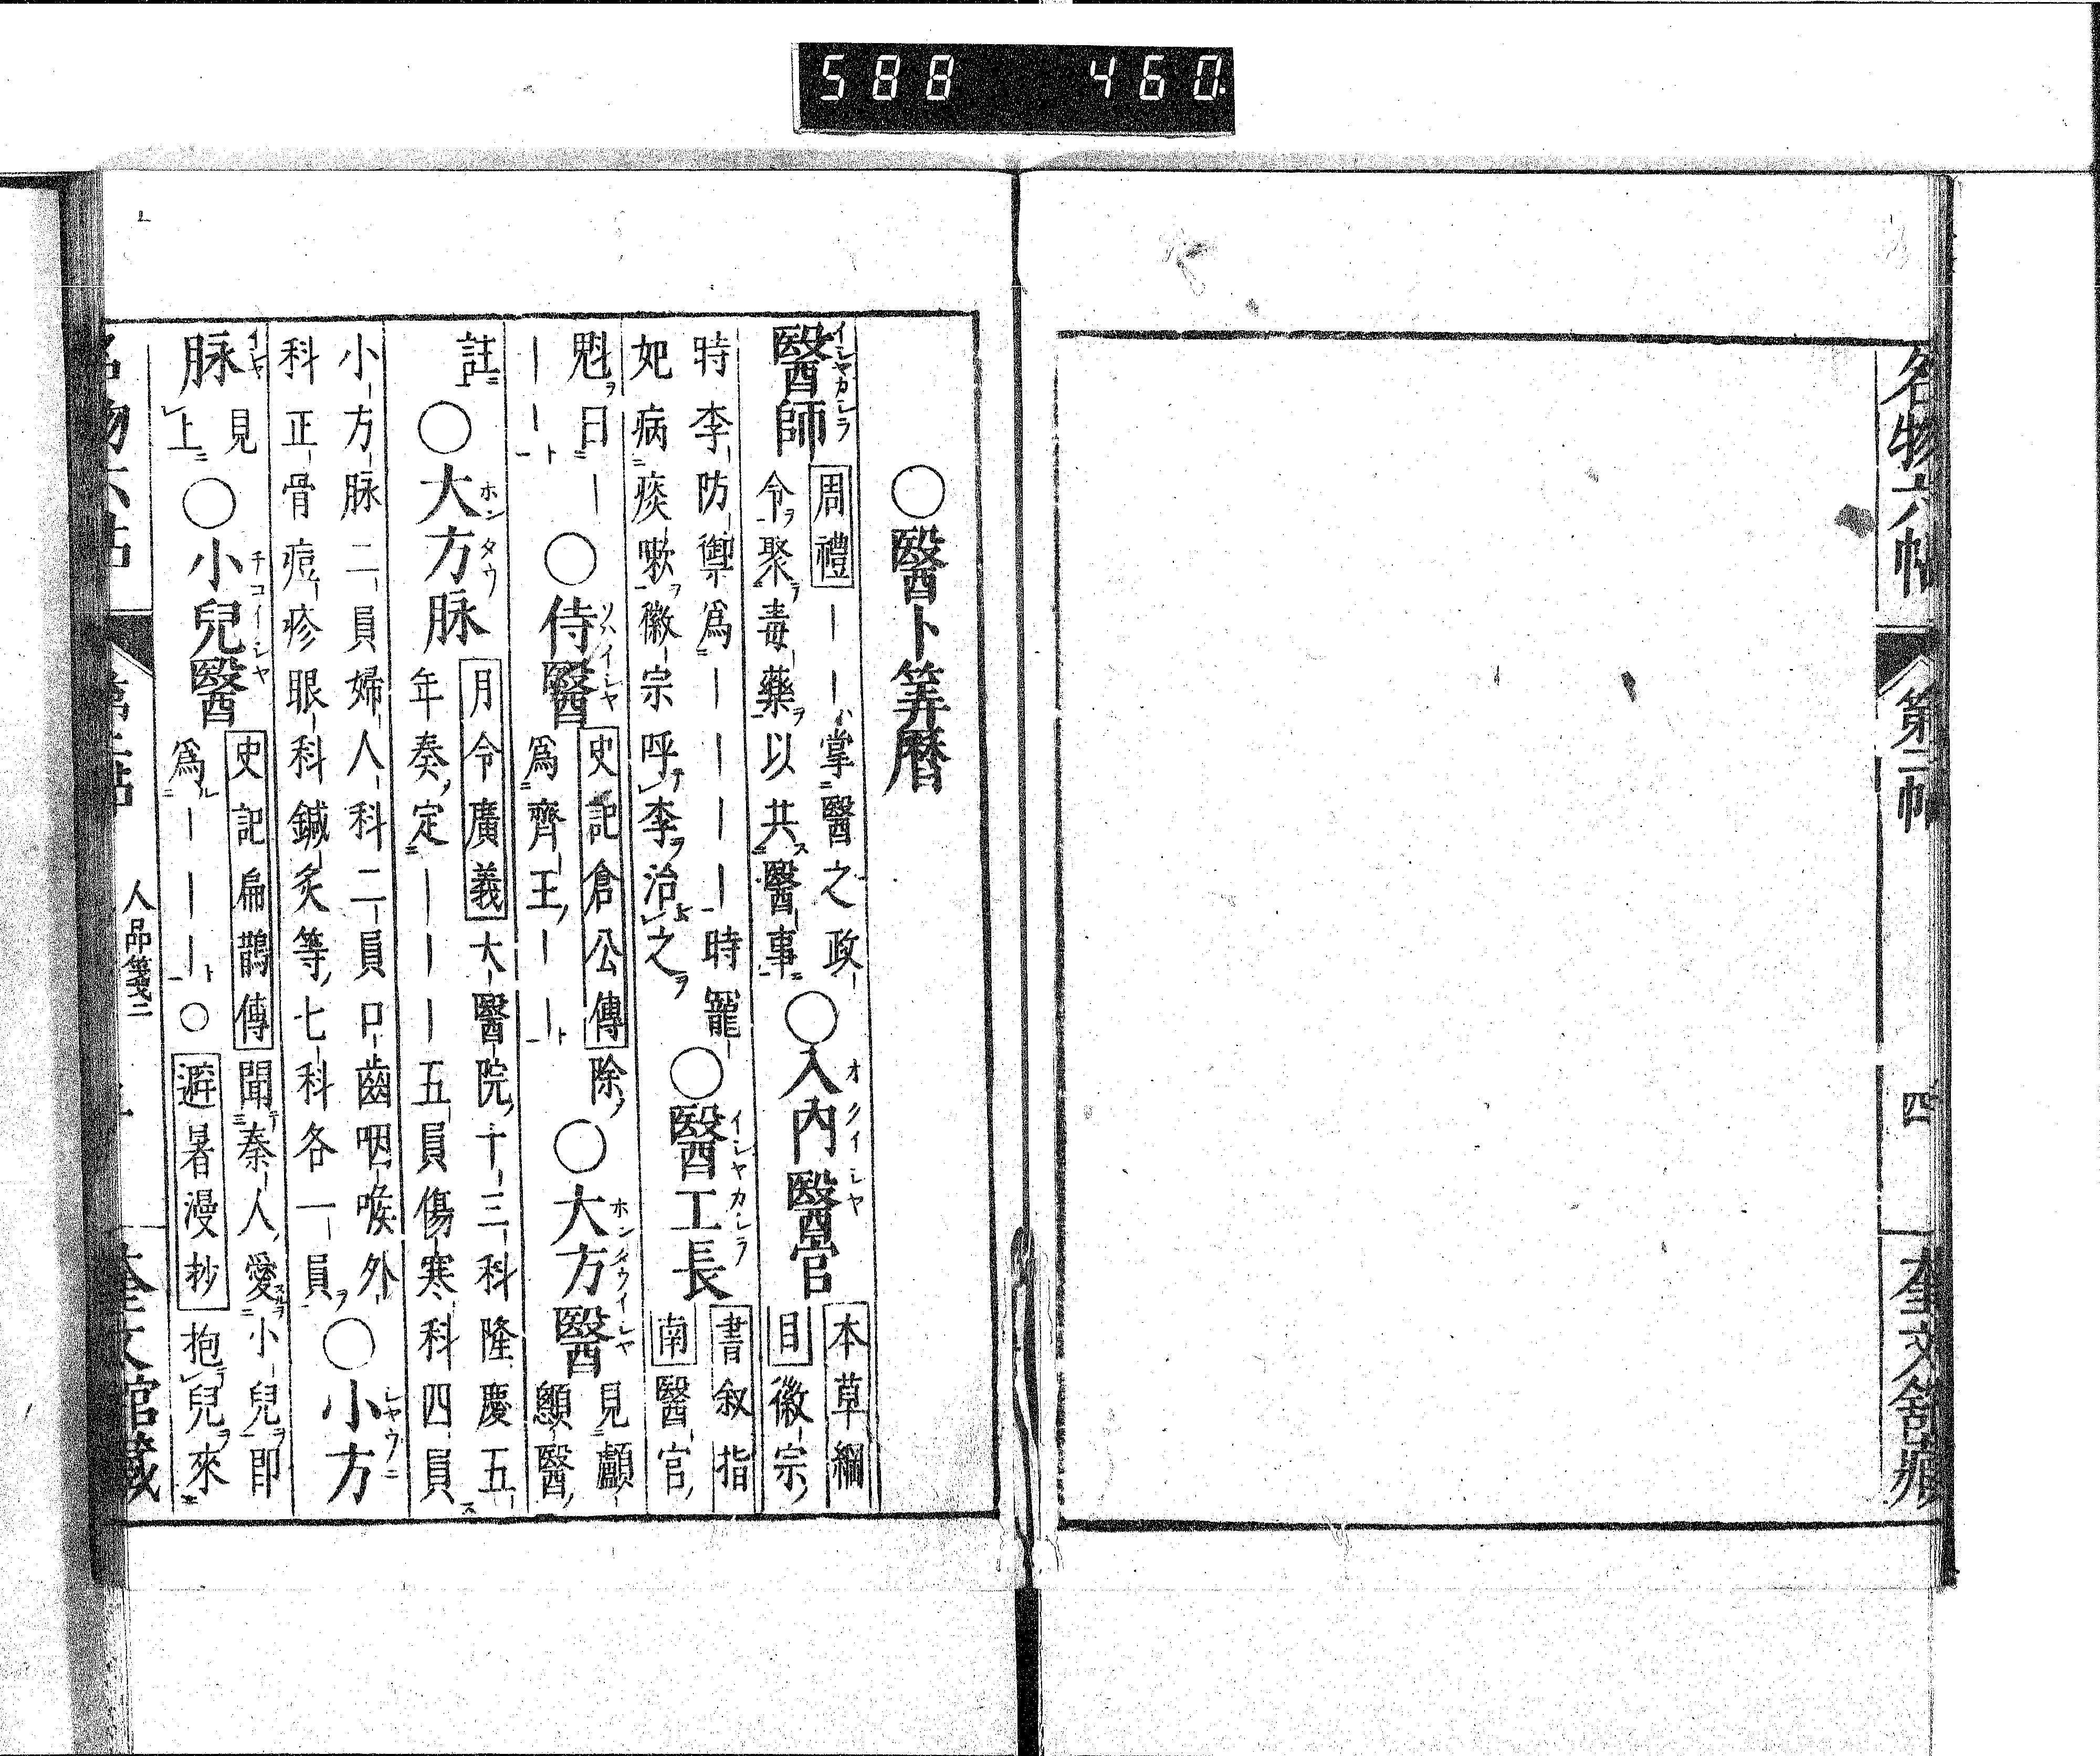 588 460
名物六帖 第二帖 四 奎文舘藏
○醫卜筭曆
醫師 周禮――掌醫之政
令聚毒藥以共醫事
○入内醫官 本草綱
目徽宗
時李防禦爲――――時寵
妃病痰嗽徽宗呼李治之
○醫工長 書叙指
南醫官
魁曰―
――
○侍醫 史記倉公傳除
爲齊王――
○大方醫 見顱
顖醫
註
○大方脉 月令廣義大醫院十三科隆慶五
年奏定―――五員傷寒科四員
小方脉二員婦人科二員口齒咽喉外
科正骨痘疹眼科鍼灸等七科各一員
○小方
脉 見
上
○小兒醫 史記扁鵲傳聞秦人愛小兒即
爲―――○避暑漫抄抱兒來
名物六帖 第二帖 人品箋二 奎文舘藏